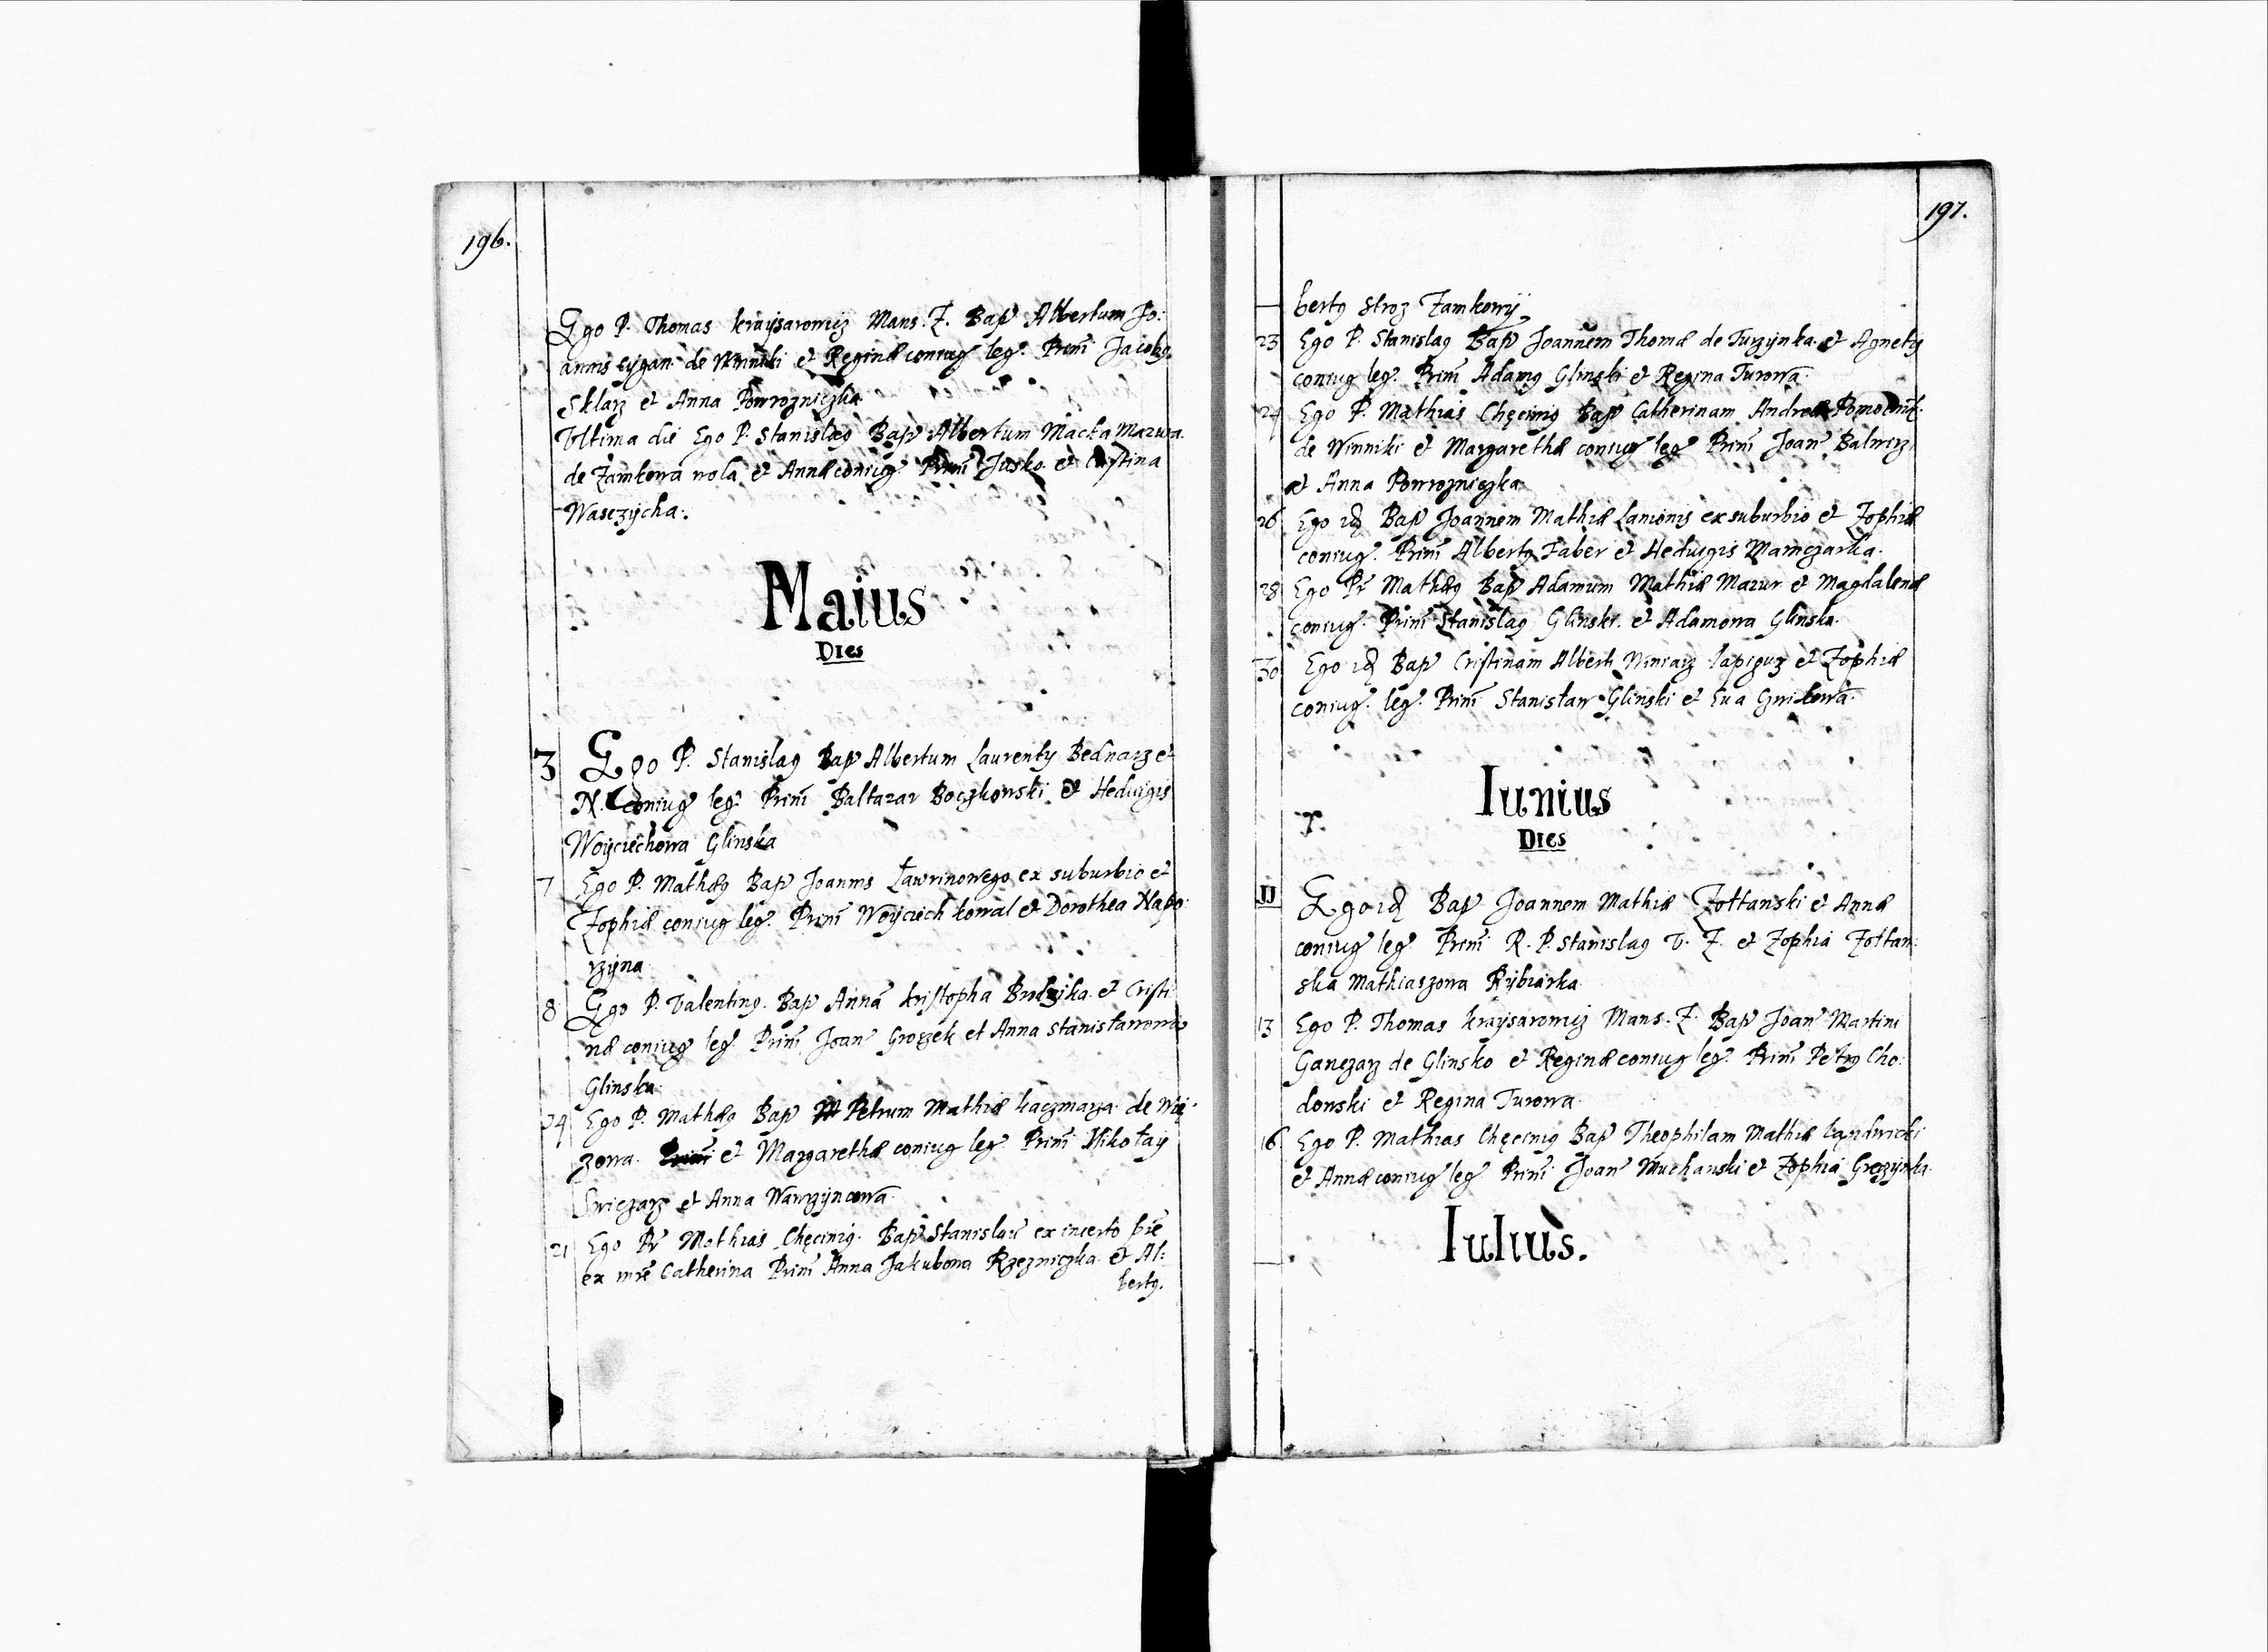 196.
Ego P. Thomas kraÿsarowicz Mans. Z. Bap Albertum Jo:
annis cÿgan de Winniki et Reginæ coniug leg. Prim̃ Jacobꝯ
Sklarz et Anna Powrozniczka
Vltima die Ego P. Stanislaꝯ Bap Albertum Macka Mazura
de Zamkowa wola et Annæ coniug. Prim̃ Jusko et Cristina
Wasczÿcha.
Maius
Dies
3 Ego P. Stanislaꝯ Bap Albertum Laurentÿ Bednarz et
N. coniug leg. Prim̃ Baltazar Boczkowski et Hedvigis
Woÿciechowa Glinska
7 Ego P. Mathæꝯ Bap Joannis Ławrinowego ex suburbio et
Zophiæ coniug leg. Prim̃ Woÿciech kowal et Dorothea Napo:
rzÿna
8 Ego P. Valentinꝯ. Bap Annã kristopha et Cristi
næ coniug leg. Prim̃ Joan Groszek et Anna Stanisławowa
Glinska
14 Ego P. Mathæꝯ Bap Petrum Mathiæ kaczmarza de Wię
zowa. et Margarethæ coniug leg Prim̃ Nikołaÿ
Swiczarz et Anna Wawrzÿncowa
21 Ego Pr̃ Mathias Chęciniꝯ. Bap Stanislaũ ex incerto pr̃e
ex mr̃e Catherina Prim̃ Anna Jakubowa Rzezniczka et Al:
bertꝯ.
197.
bertꝯ Stroz Zamkowÿ
23 Ego P. Stanislaꝯ Bap Joannem Thomæ de Turzÿnka et Agnetis
coniug leg. Prim̃ Adamꝯ Glinski et Regina Turowa
24 Ego P. Mathias Chęciniꝯ Bap Catherinam Andreæ Pomocnik
de Winniki et Margarethæ coniug leg Prim̃ Joan Balwirz
et Anna Powrozniczka
26 Ego id Bap Joannem Mathiæ Lanionis ex suburbio et Zophiæ
coniug. Prim̃ Albertꝯ Faber et Heduigis Mamczarka.
28 Ego Pr̃ Mathæꝯ Bap Adamum Mathiæ Mazur et Magdalenæ
coniug. Prim̃ Stanislaꝯ Glinski et Adamowa Glinska.
30 Ego id Bap Cristinam Alberti Winiarz et Zophiæ
coniug. leg. Prim̃ Stanisław Glinski et Eua
Iunius
Dies
Ego id Bap Joannem Mathiæ Zołtanski et Annæ
coniug leg Prim̃ R. P. Stanislaꝯ V. Z. et Zophia Zołtan:
ska Mathiaszowa Rÿbiarka
13 Ego P. Thomas kraÿsarowicz Mans. Z. Bap Joan Martini
Ganczarz de Glinsko et Reginæ coniug leg. Prim̃ Petrꝯ Cho:
donski et Regina Turowa
16 Ego P. Mathias Chęciniꝯ Bap Theophilam Mathiæ
et Annæ coniug leg Prim̃ Joan Muchanski et Zophia
Iulius.